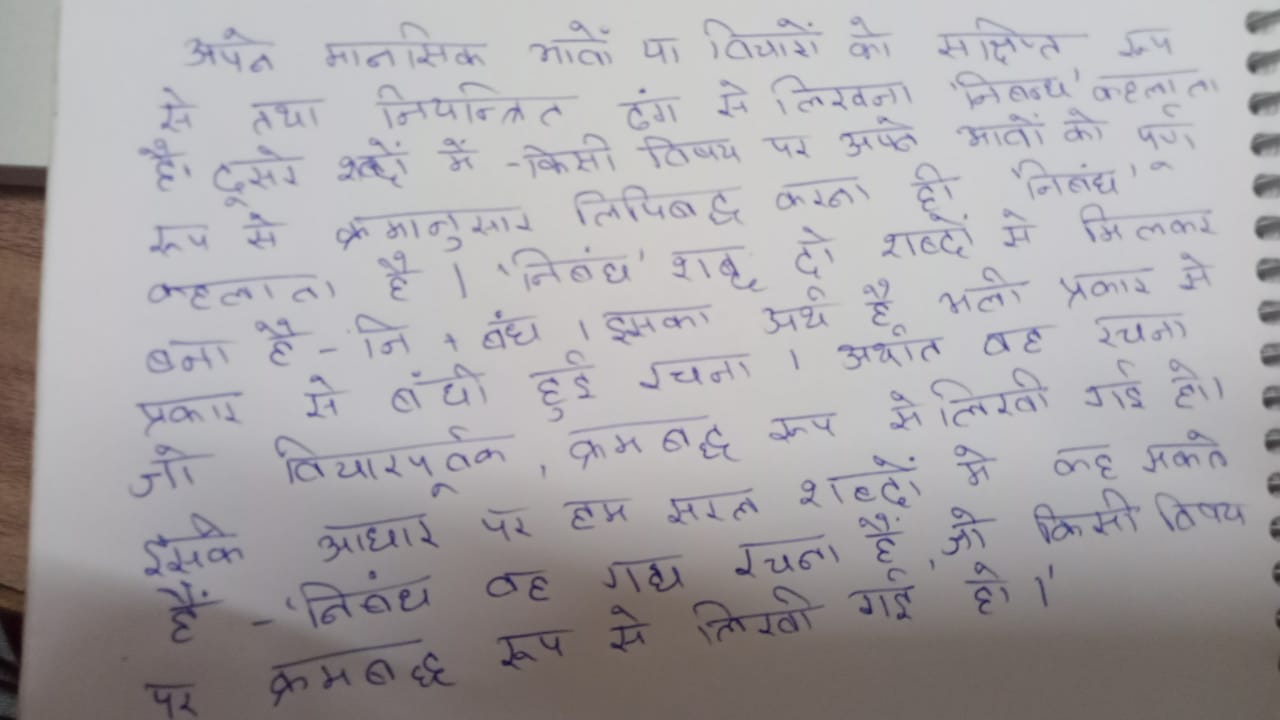 अपने मानसिक भावों या विचारों को संक्षिप्त रूप
से तथा नियन्त्रित ढंग से लिखना 'निबन्ध' कहलाता
है। दूसरे शब्दों में - किसी विषय पर अपने भावों को पूर्ण
रूप से क्रमानुसार लिपिबद्ध करना ही 'निबंध'
कहलाता है । 'निबंध' शब्द दो शब्दों से मिलकर
बना है - नि + बंध । इसका अर्थ है भली प्रकार से
प्रकार से बंधी हुई रचना । अर्थात वह रचना
जो विचारपूर्वक , क्रमबद्ध रूप से लिखी गई हो।
इसके आधार पर हम सरल शब्दों में कह सकते
हैं - 'निबंध वह गद्य रचना है , जो किसी विषय
पर क्रमबद्ध रूप से लिखी गई हो ।'